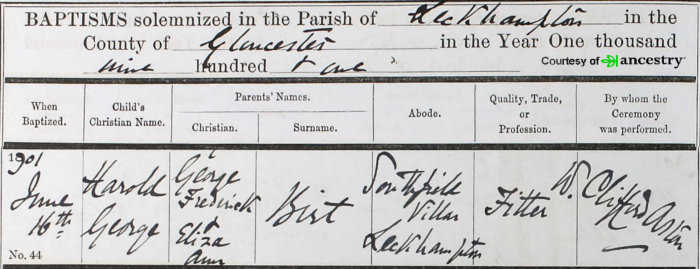 BAPTISMS solemnized in the Parish of Leckhampton in the
County of Gloucester in the Year One thousand
nine hundred & one
Courtesy of ancestry
When Baptized.
Child's Christian Name.
Parents' Names.
Christian.
Surname.
Abode.
Quality, Trade, or Profession.
By whom the Ceremony was performed.
1901
June
16th
No. 44
Harold
George
George
Frederick
&
Eliza
Ann
Birt
Southfield
Villas
Leckhampton
Fitter
W. Clifford Aston